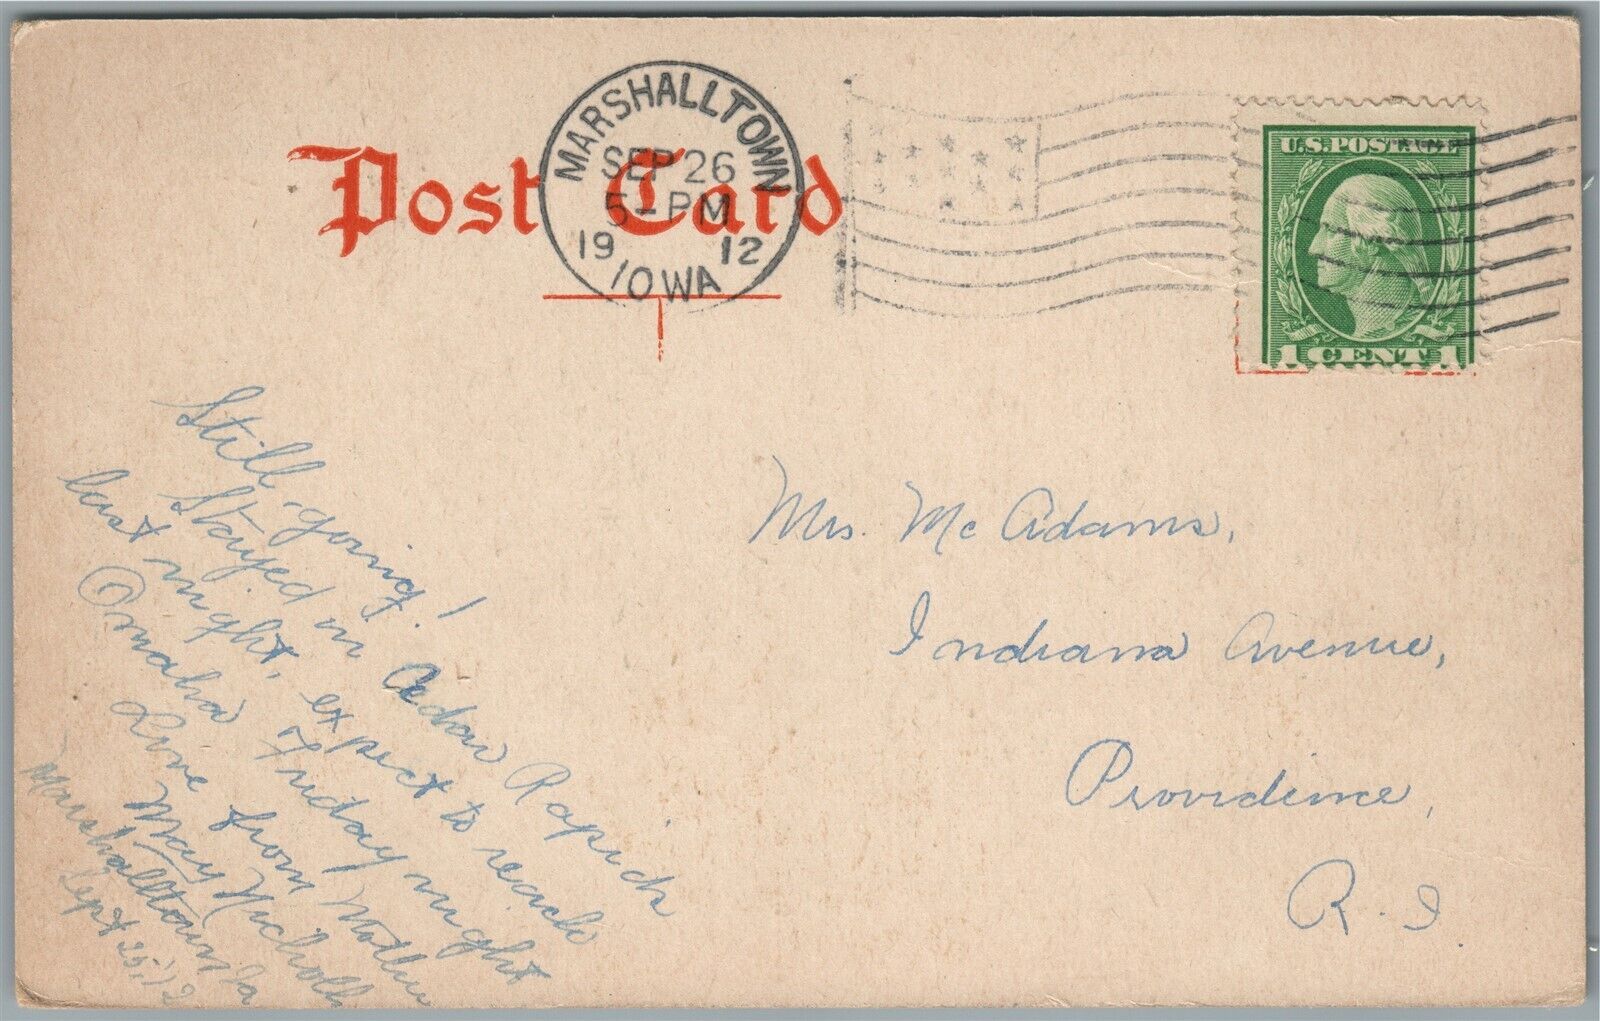 Post Card
MARSHALLTOWN
SEP 26
5-PM
19 12
IOWA
U.S. POSTAGE
1 CENT 1
Still going!
Stayed in Cedar Rapids
last night, expect to reach
Omaha Friday night
Love from Mother
May Nicholls
Marshalltown Ia
Sept 25, '12
Mrs. McAdams,
Indiana Avenue,
Providence,
R. I.